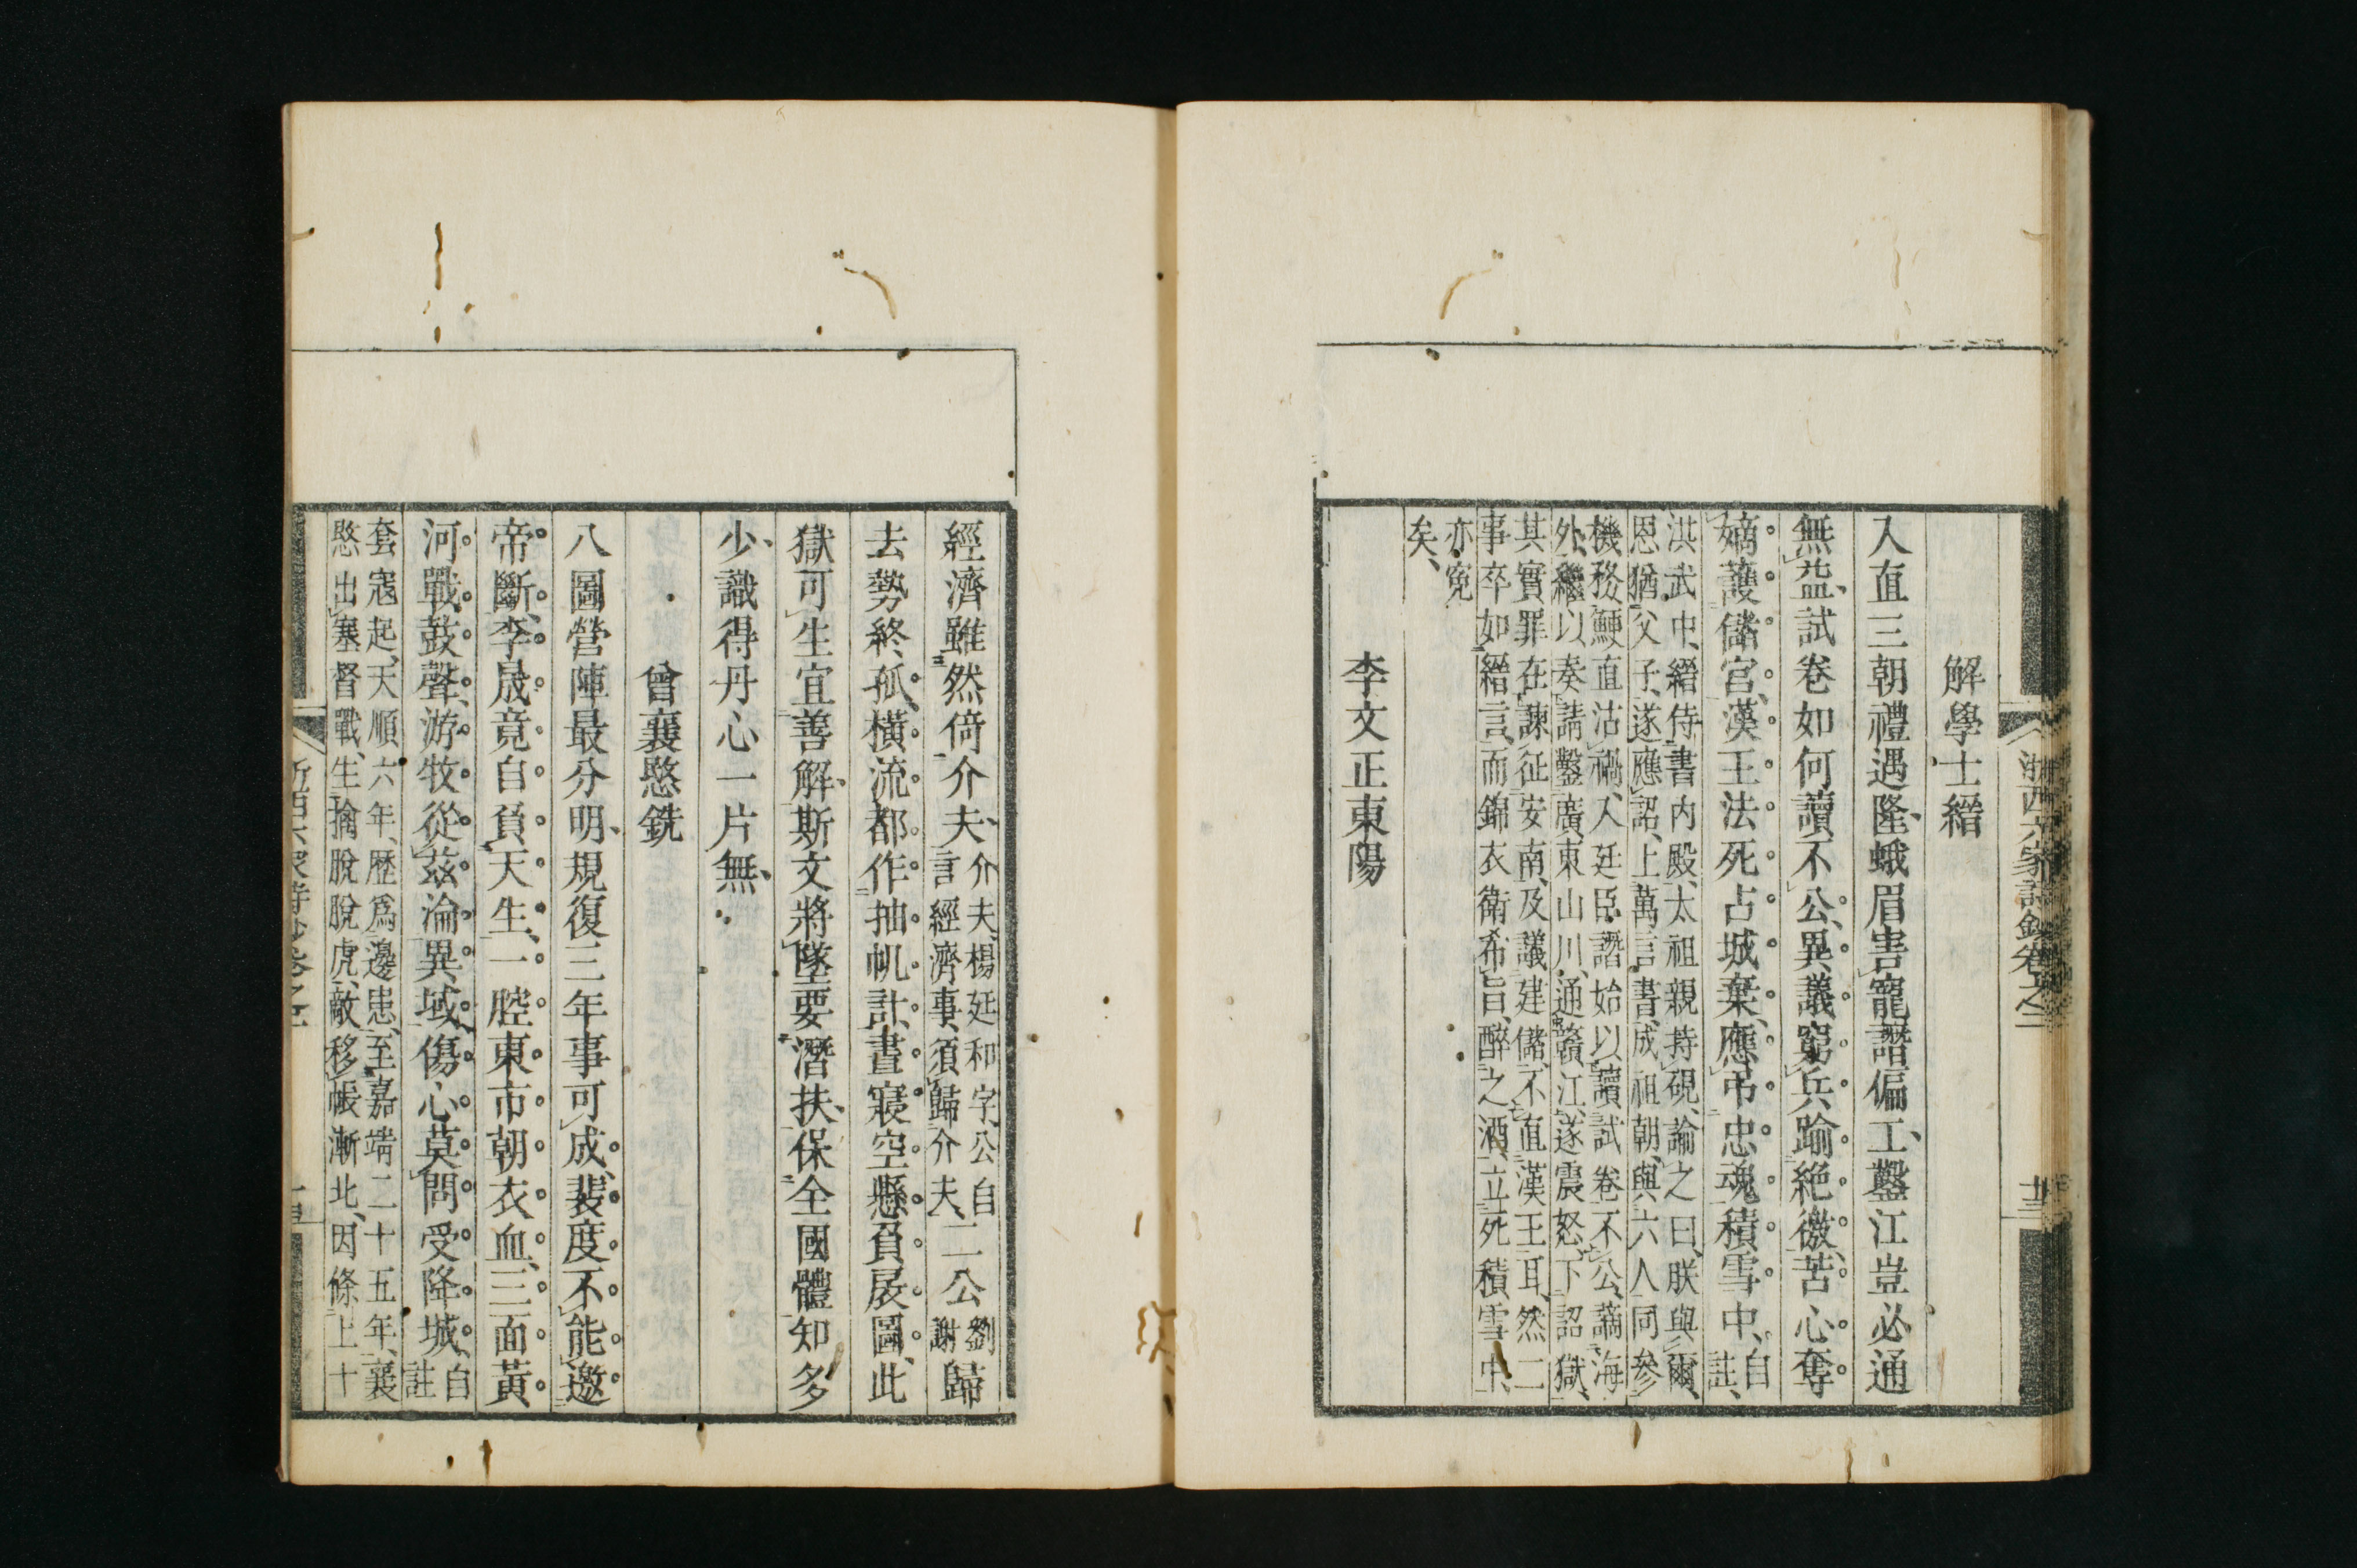 浙西六家詩鈔卷之二
廿三
解學士縉
入直三朝禮遇隆、蛾眉害寵譖偏工、鑿江豈必通
無益、試卷如何讀不公、異議窮兵踰絶徼、苦心奪
嫡護儲宮、漢王法死占城棄、應弔忠魂積雪中、自註、
洪武中、縉侍書内殿、太祖親持硯、諭之曰、朕與爾、
恩猶父子、遂應詔、上萬言書、成祖朝、與六人同參
機務、鯁直沽禍、入廷臣譖、始以讀試卷不公、謫海
外、繼以奏請鑿廣東山川、通贛江、遂震怒、下詔獄、
其實罪在諫征安南、及議建儲、不直漢王耳、然二
事卒如縉言、而錦衣衛希旨、醉之酒、立死積雪中、
亦寃
矣、
李文正東陽
經濟雖然倚介夫、介夫、楊廷和字、公自
言經濟事、須歸介夫、二公劉謝歸
去勢終孤、橫流都作抽帆計、晝寢空懸負扆圖、此
獄可生宜善解、斯文將墜要潛扶、保全國體知多
少、識得丹心一片無、
曾襄愍銑
八圖營陣最分明、規復三年事可成、裴度不能邀
帝斷、李晟竟自負天生、一腔東市朝衣血、三面黃
河戰鼓聲、游牧從茲淪異域、傷心莫問受降城、自註
套寇起、天順六年、歴爲邊患、至嘉靖二十五年、襄
愍出塞督戰、生擒脫脫虎、敵移帳漸北、因條上十